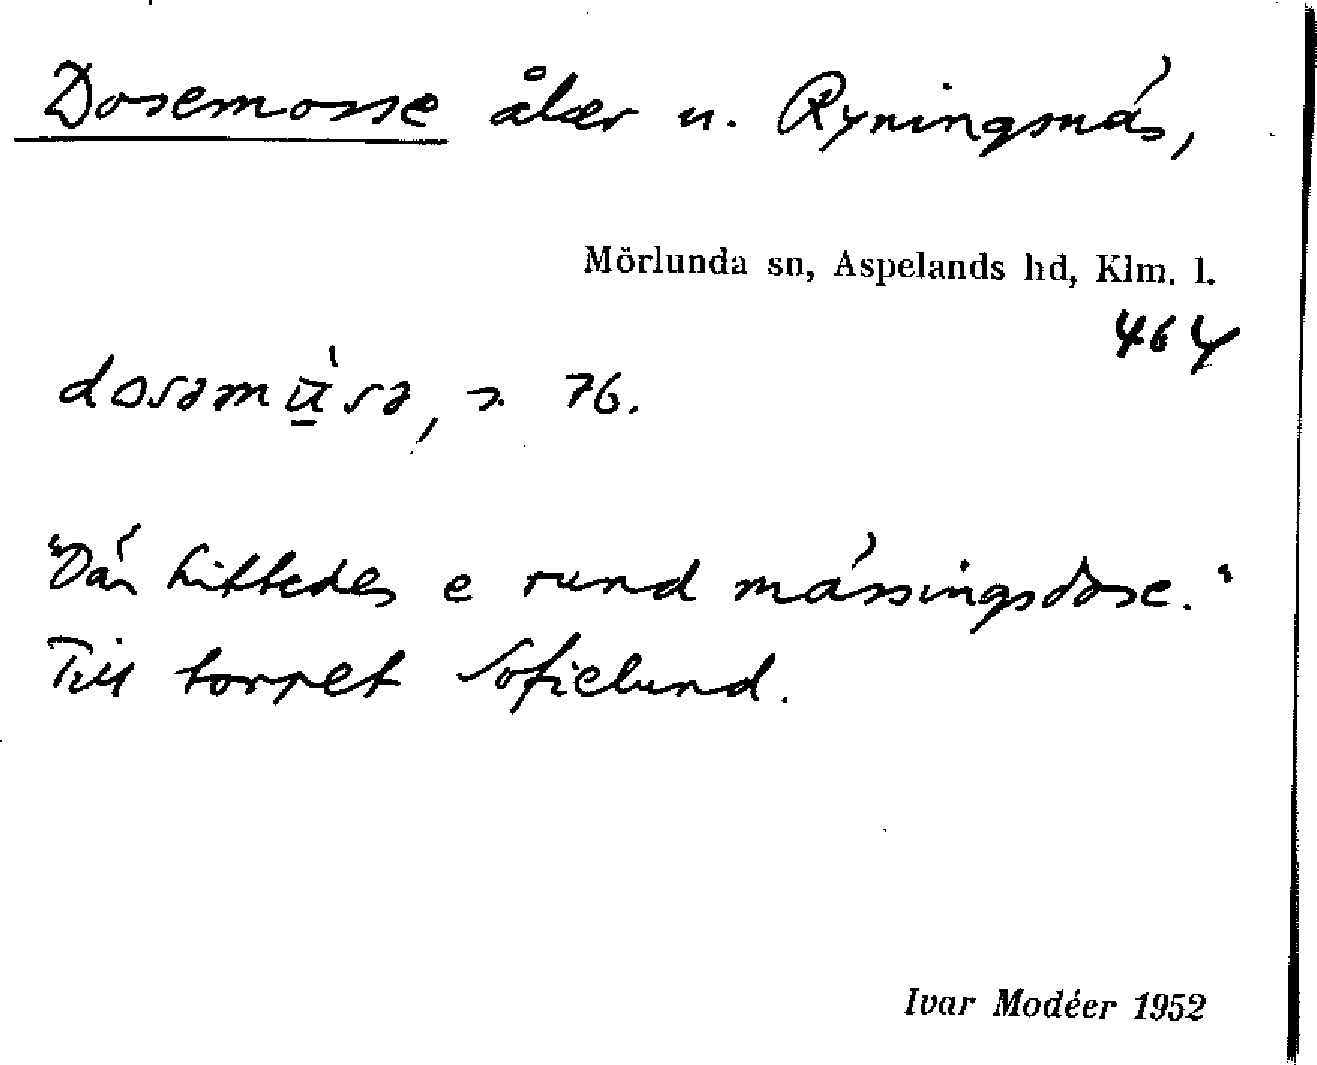 Dosemosse åker u. Ryningsnäs,
Mörlunda sn, Aspelands hd, Klm. l.
464
s. 76.
"Där hittades e rund mässingsdose."
Till torpet Sofielund.
Ivar Modéer 1952